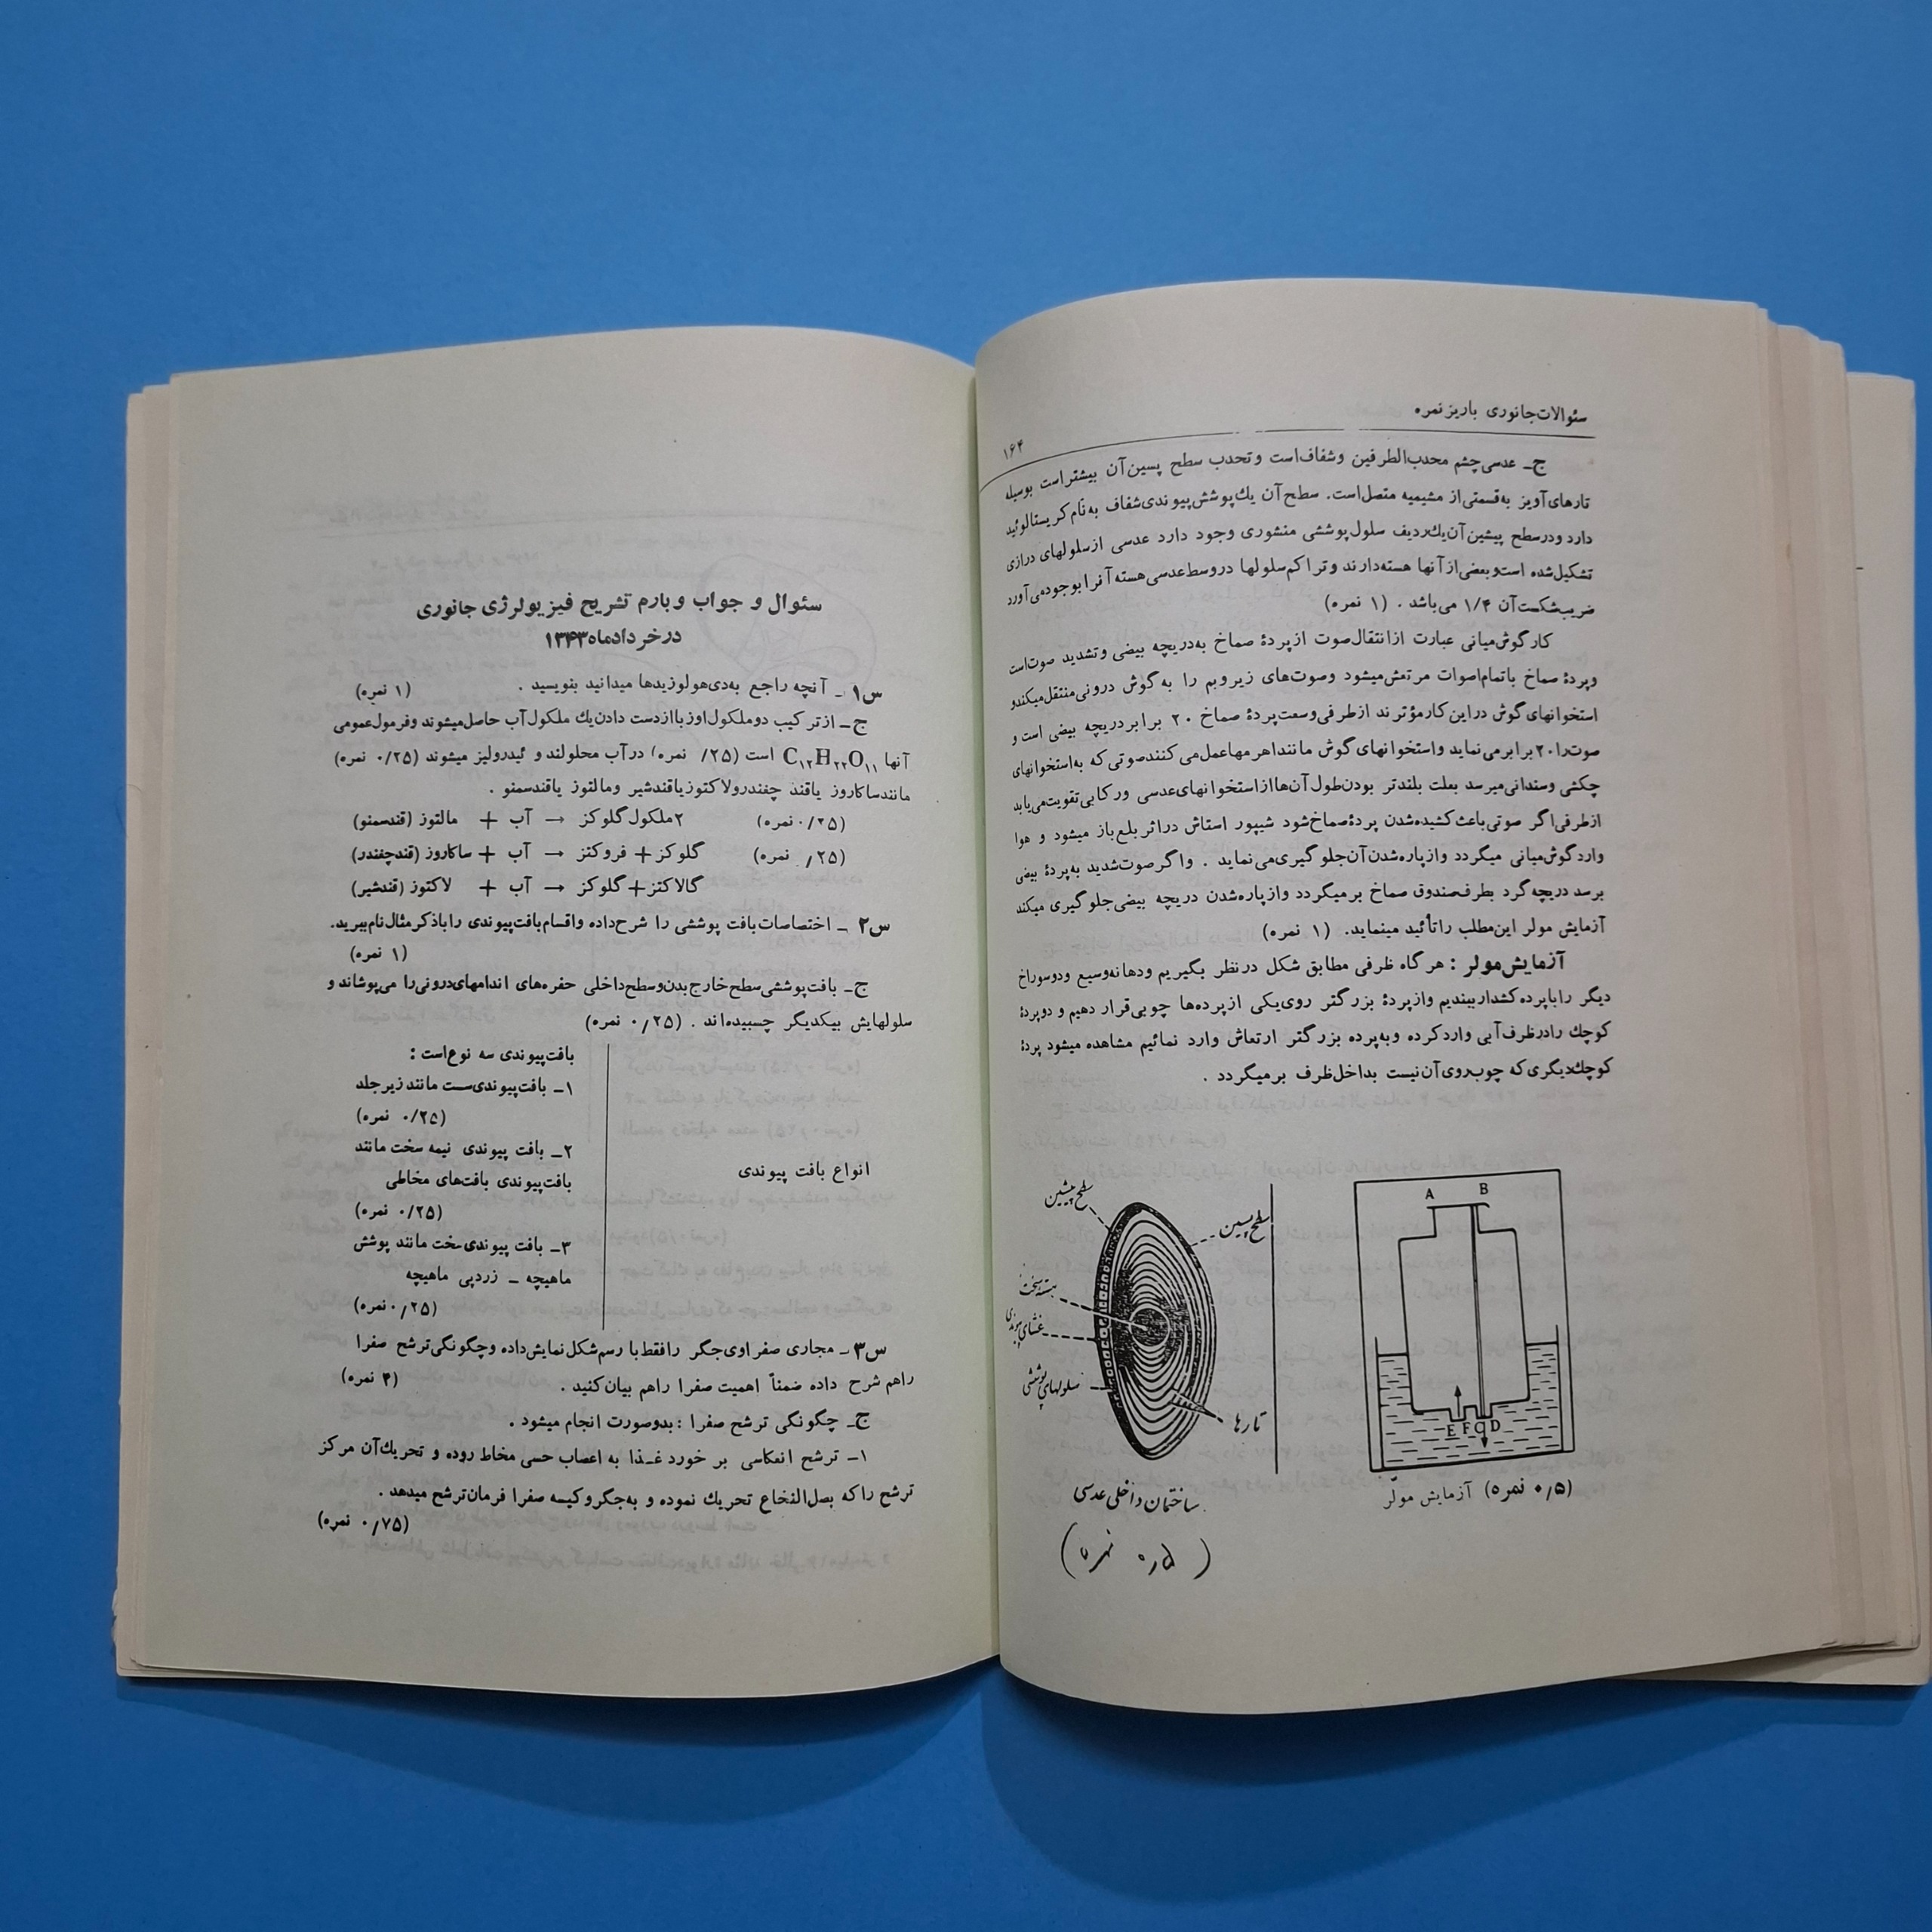 سئوالات جانوری باریز نمره
۱۶۴
ج‍ـ عدسی چشم محدب‌الطرفین وشفاف‌است وتحدب سطح پسین‌آن بیشتراست بوسیله
تارهای‌آویز به‌قسمتی‌از مشیمیه متصل‌است. سطح‌آن یك‌پوشش‌پیوندی‌شفاف به‌نام‌کریستالوئید
دارد ودرسطح پیشین‌آن‌یك‌ردیف سلول‌پوششی منشوری وجود دارد عدسی ازسلولهای درازی
تشکیل‌شده است‌وبعضی‌ازآنها هسته‌دارند وتراکم‌سلولها دروسط‌عدسی‌هسته آنرابوجودمی‌آورد
ضریب‌شکست‌آن ۱/۴ می‌باشد . (۱ نمره)
کارگوش‌میانی عبارت ازانتقال‌صوت ازپردهٔ صماخ به‌دریچه بیضی وتشدید صوت‌است
وپردهٔ صماخ باتمام‌اصوات مرتعش‌میشود وصوت‌های زیروبم را به‌گوش درونی‌منتقل‌میکندو
استخوانهای گوش دراین‌کارمؤثرند ازطرفی‌وسعت‌پردهٔ صماخ ۲۰ برابردریچه بیضی است و
صوت‌را۲۰برابرمی‌نماید واستخوانهای گوش ماننداهرمهاعمل‌می‌کنندصوتی‌که به‌استخوانهای
چکشی وسندانی‌میرسد بعلت بلندتر بودن‌طول آن‌هاازاستخوانهای‌عدسی ورکابی‌تقویت‌می‌یابد
ازطرفی‌اگر صوتی‌باعث‌کشیده‌شدن پردهٔ‌صماخ‌شود شیپور استاش دراثر بلع‌باز میشود و هوا
واردگوش‌میانی میگردد وازپاره‌شدن‌آن‌جلوگیری‌می‌نماید . واگرصوت‌شدید به‌پردهٔ بیضی
برسد دریچه‌گرد بطرف‌صندوق صماخ برمیگردد وازپاره‌شدن دریچه بیضی‌جلوگیری میکند
آزمایش مولر این‌مطلب راتأئید مینماید. (۱ نمره)
آزمایش‌مولر : هرگاه ظرفی مطابق شکل درنظر بگیریم ودهانه‌وسیع ودوسوراخ
دیگر راباپرده‌کشدارببندیم وازپردهٔ بزرگتر روی‌یکی ازپرده‌ها چوبی‌قرار دهیم و دوپردهٔ
کوچك رادرظرف‌آبی واردکرده وبه‌پرده بزرگتر ارتعاش وارد نمائیم مشاهده میشود پردهٔ
کوچك‌دیگری‌که چوب‌روی‌آن‌نیست بداخل‌ظرف برمیگردد .
A B
E F C D
(۰/۵ نمره) آزمایش مولر
سطح پیشین
سطح پسین
هسته سخت
غشای پیوندی
سلولهای پوششی
تارها
ساختمان داخلی عدسی
سئوال و جواب وبارم تشریح فیزیولرژی جانوری
درخردادماه۱۳۴۳
س۱ ـ آنچه راجع به‌دی‌هولوزیدها میدانید بنویسید . (۱ نمره)
ج‍ـ ازترکیب دوملکول‌اوزبااز‌دست دادن‌یك ملکول‌آب حاصل‌میشوند وفرمول‌عمومی
آنها C₁₂H₂₂O₁₁ است (۲۵/ نمره) درآب محلولند و ئیدرولیز میشوند (۰/۲۵ نمره)
مانندساکاروز یاقند چغندرولاکتوزیاقندشیر ومالتوز یاقندسمنو .
(۰/۲۵نمره) ۲ملکول‌گلوکز → آب + مالتوز (قندسمنو)
(۲۵/ نمره) گلوکز+ فروکتز → آب + ساکاروز (قندچغندر)
گالاکتز+گلوکز → آب + لاکتوز (قندشیر)
س۲ ـ اختصاصات‌بافت پوششی را شرح‌داده واقسام‌بافت‌پیوندی راباذکرمثال‌نام‌ببرید.
(۱ نمره)
ج‍ـ بافت‌پوششی‌سطح‌خارج‌بدن‌وسطح‌داخلی حفره‌های اندامهای‌درونی‌را می‌پوشاند و
سلولهایش بیکدیگر چسبیده‌اند . (۰/۲۵ نمره)
انواع بافت پیوندی
بافت‌پیوندی سه نوع‌است :
۱ـ بافت‌پیوندی‌سست مانند زیرجلد
(۰/۲۵ نمره)
۲ـ بافت پیوندی نیمه سخت مانند
بافت‌پیوندی بافت‌های مخاطی
(۰/۲۵ نمره)
۳ـ بافت پیوندی‌سخت مانند پوشش
ماهیچه ـ زردپی ماهیچه
(۰/۲۵نمره)
س۳ـ مجاری صفراوی‌جگر رافقط‌با رسم‌شکل‌نمایش‌داده وچگونگی‌ترشح صفرا
راهم شرح داده ضمناً اهمیت صفرا راهم بیان‌کنید . (۴ نمره)
ج‍ـ چگونگی ترشح صفرا : بدوصورت انجام میشود .
۱ـ ترشح انعکاسی بر خورد غـذا به اعصاب حسی مخاط روده و تحریك‌آن مرکز
ترشح راکه بصل‌النخاع تحریك نموده و به‌جگروکیسه صفرا فرمان‌ترشح میدهد .
(۰/۷۵ نمره)